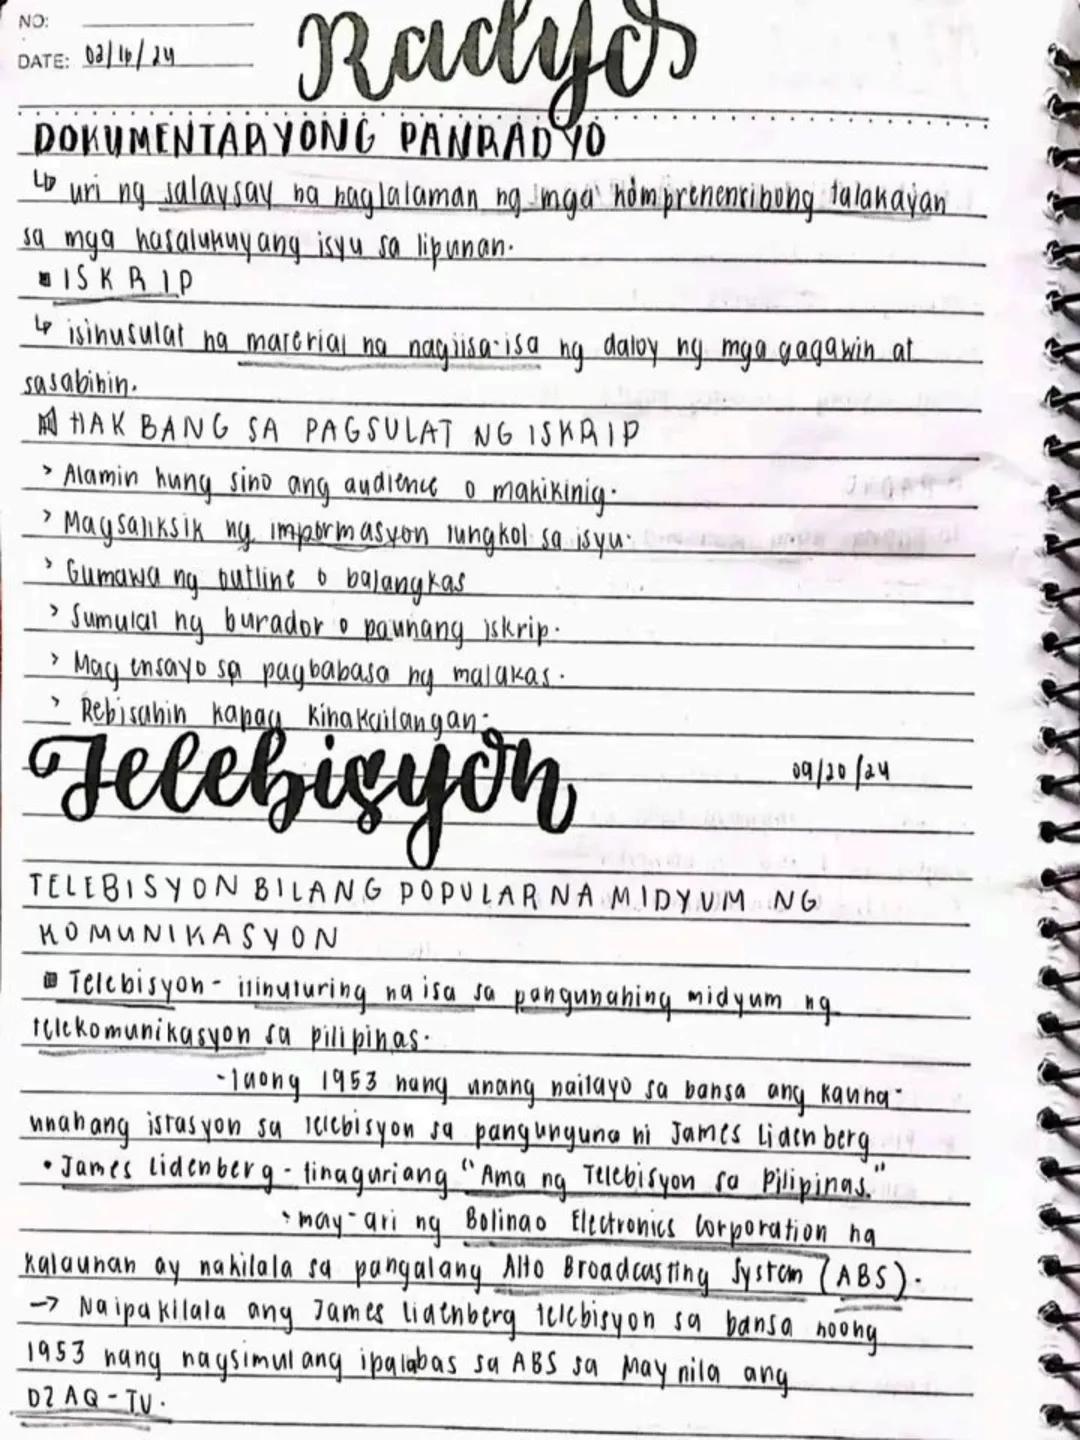 NO:
Radyo
DATE: 03/16/24
DOKUMENTARYONG PANRADYO
↳ uri ng salaysay na naglalaman ng mga komprehensibong talakayan
sa mga kasalukuyang isyu sa lipunan.
▪ ISKRIP
↳ isinusulat na material na nagiisa-isa ng daloy ng mga gagawin at
sasabihin.
HAKBANG SA PAGSULAT NG ISKRIP
> Alamin kung sino ang audience o makikinig.
> Magsaliksik ng impormasyon tungkol sa isyu.
> Gumawa ng outline o balangkas
> Sumulat ng burador o paunang iskrip.
> Mag ensayo sa pagbabasa ng malakas.
> Rebisahin kapag kinakailangan.
Telebisyon
09/20/24
TELEBISYON BILANG POPULAR NA MIDYUM NG
KOMUNIKASYON
▪ Telebisyon - itinuturing na isa sa pangunahing midyum ng
telekomunikasyon sa pilipinas.
- taong 1953 nang unang naitayo sa bansa ang kauna-
unahang istasyon sa telebisyon sa pangunguna ni James Lidenberg
• James Lidenberg - tinaguriang "Ama ng Telebisyon sa Pilipinas."
• may-ari ng Bolinao Electronics Corporation na
kalaunan ay nakilala sa pangalang Alto Broadcasting System (ABS).
→ Naipakilala ang James Lidenberg telebisyon sa bansa noong
1953 nang nagsimulang ipalabas sa ABS sa Maynila ang
DZAQ-TV.